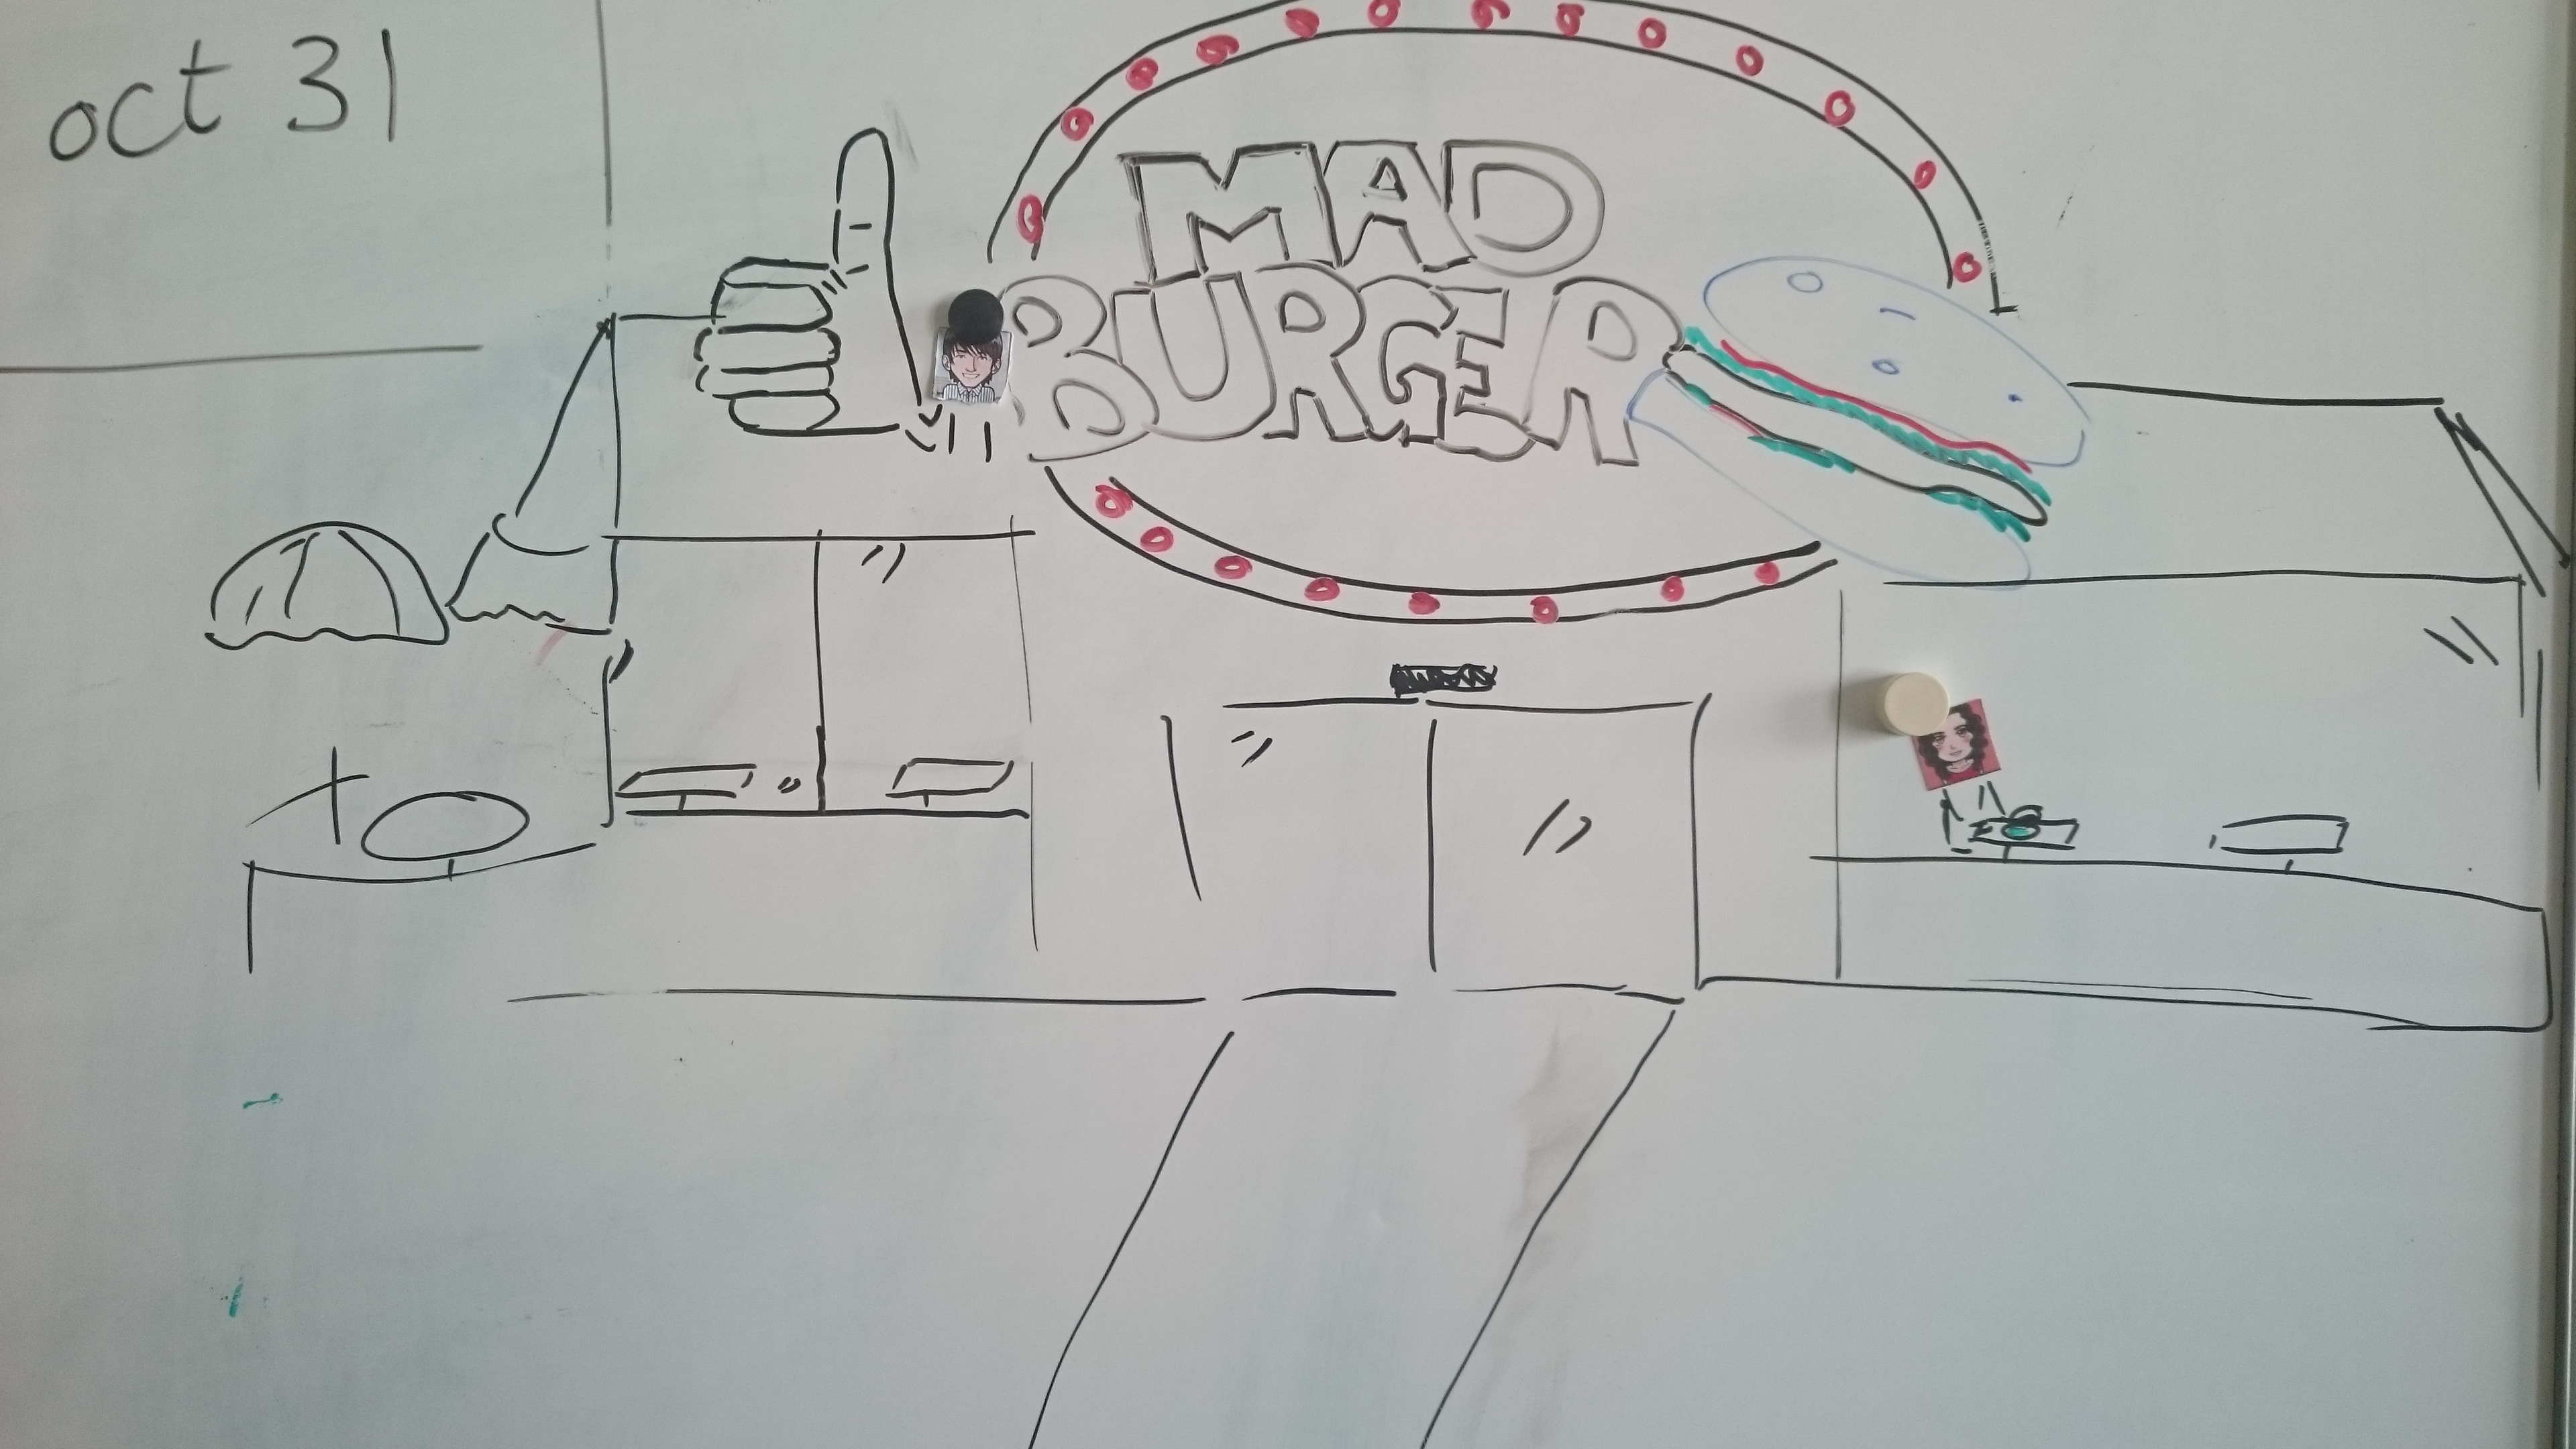 oct 31
MAD
BURGER